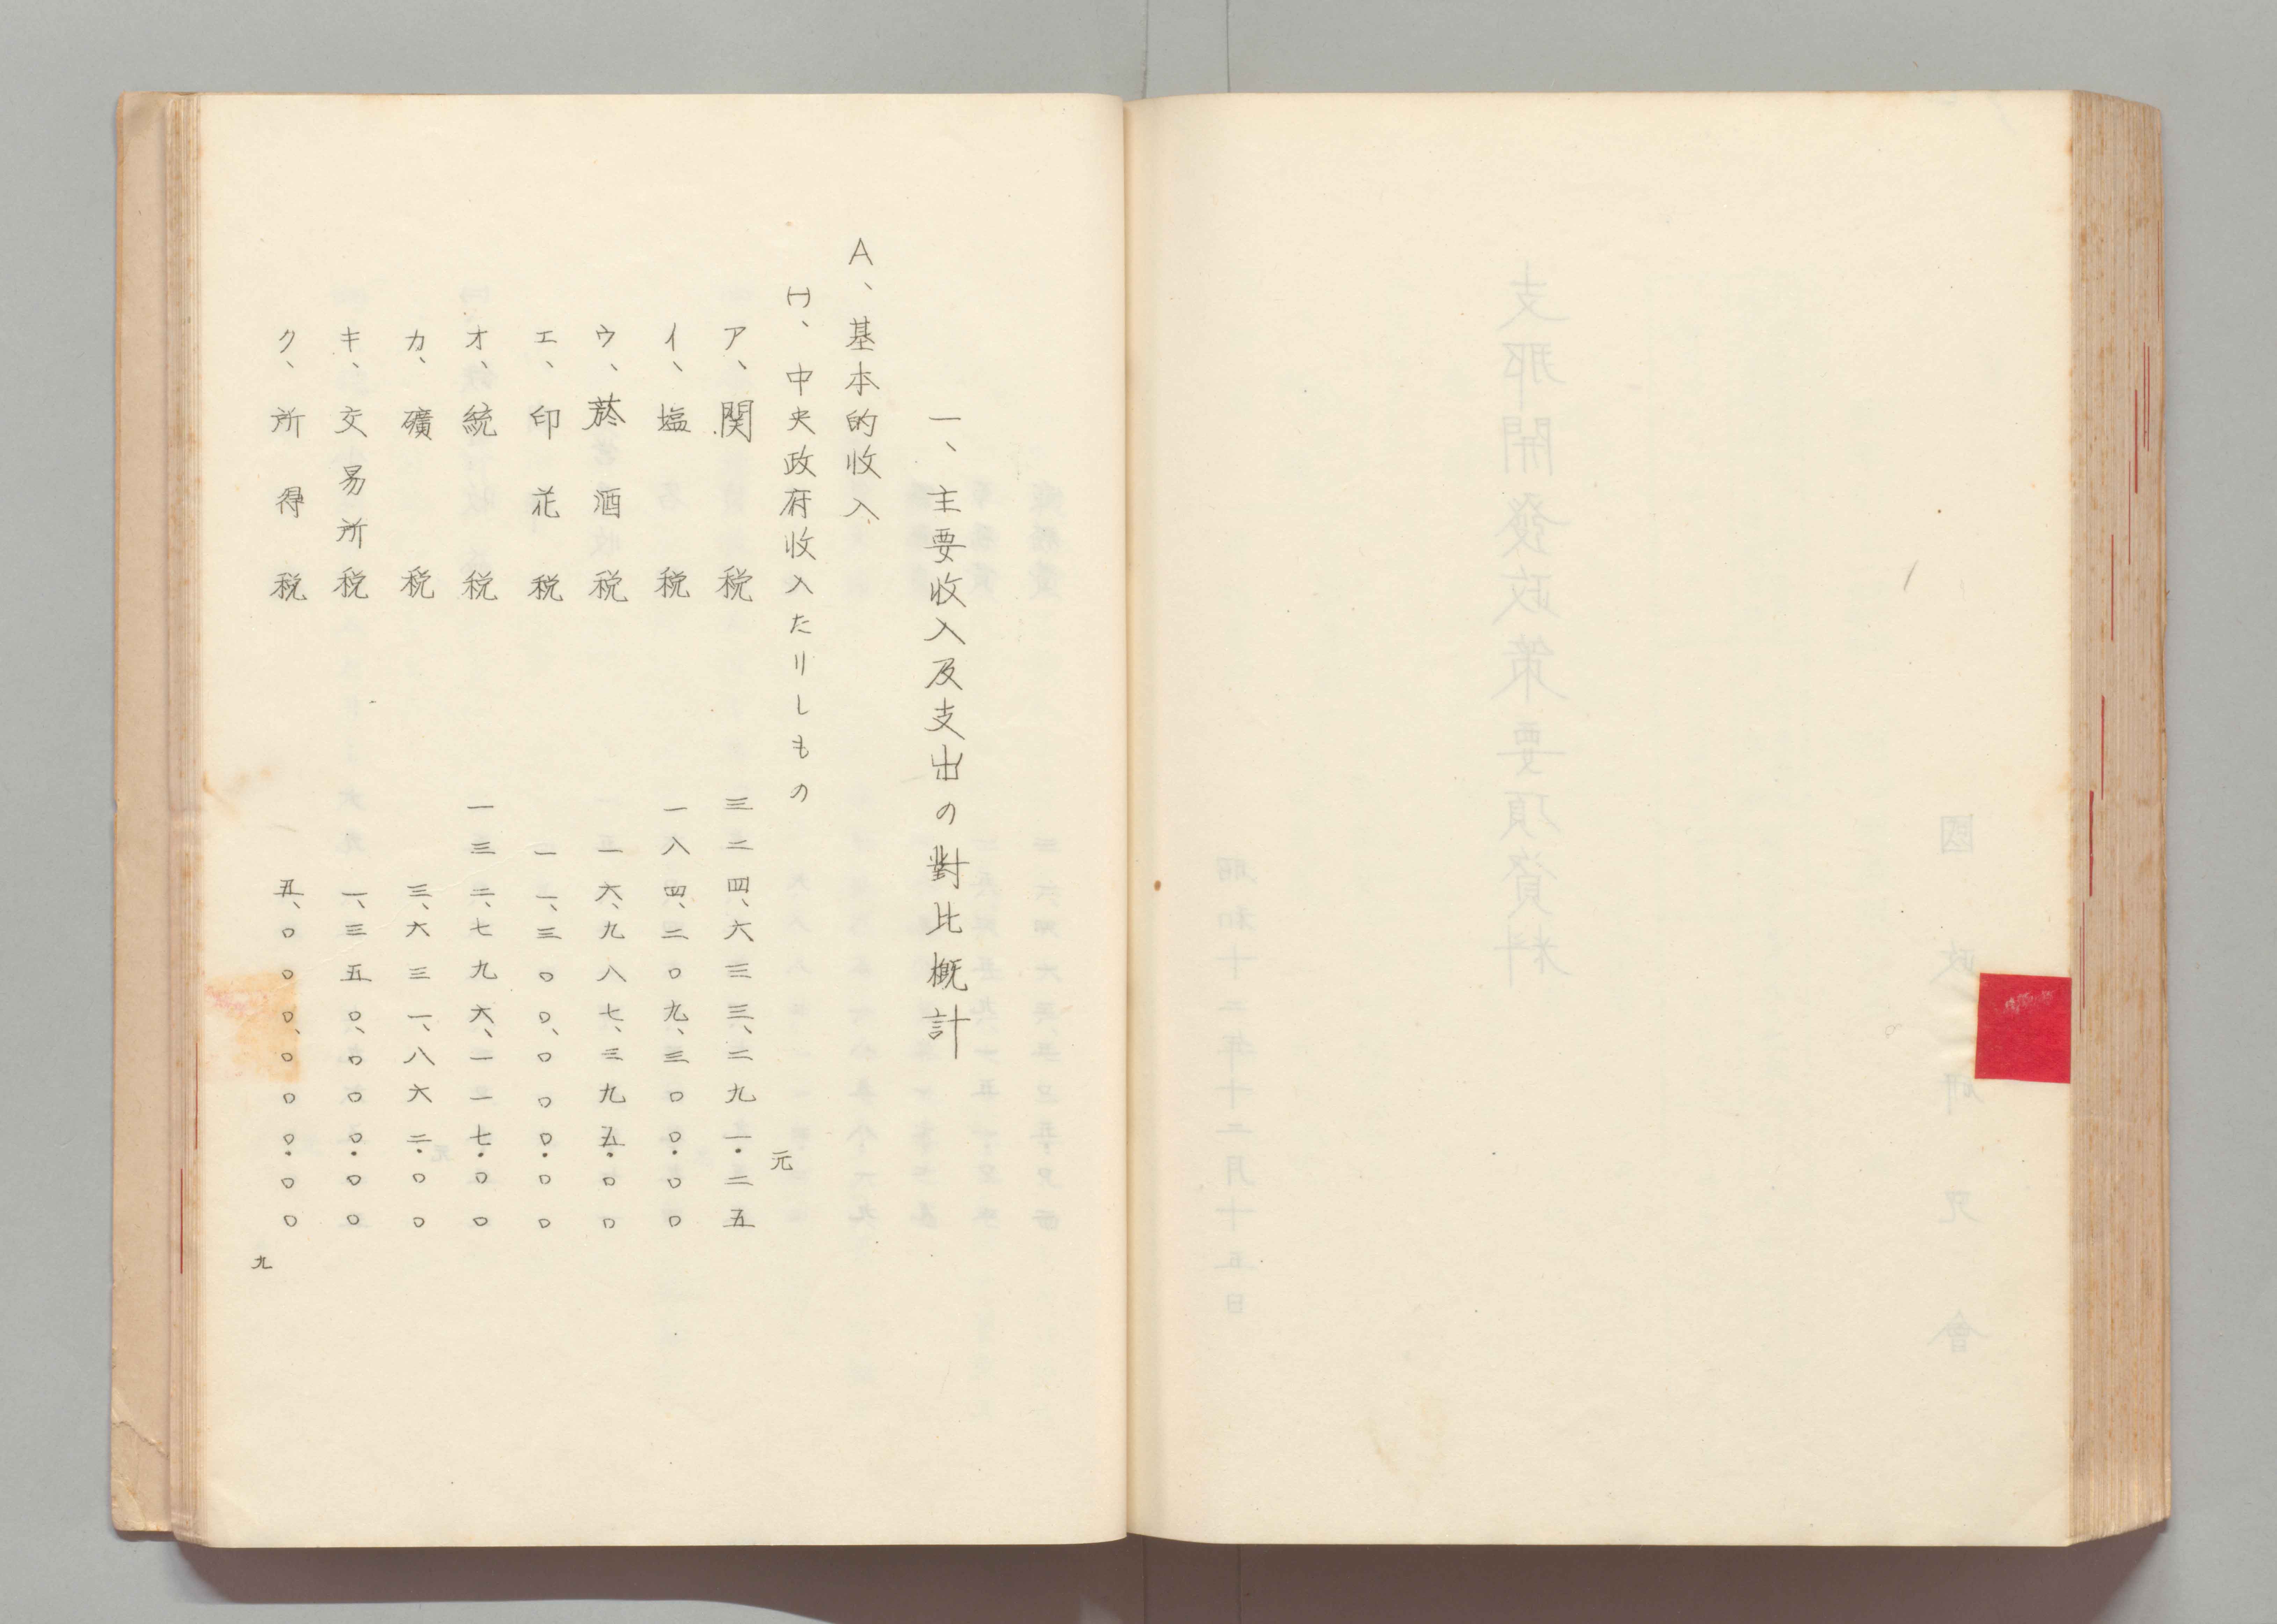 一、主要收入及支出の對比概計
A、基本的收入
㈠、中央政府收入たりしもの
元
ア、関税 三二四、六三三、二九一・二五
イ、塩税 一八四、二〇九、三〇〇・〇〇
ウ、菸酒税 一六、九八七、三九五・〇〇
エ、印花税 一一、三〇〇、〇〇〇・〇〇
オ、統税 一三二、七九六、一一七・〇〇
カ、礦税 三、六三一、八六二・〇〇
キ、交易所税 一、三五〇、〇〇〇・〇〇
ク、所得税 五、〇〇〇、〇〇〇・〇〇
九